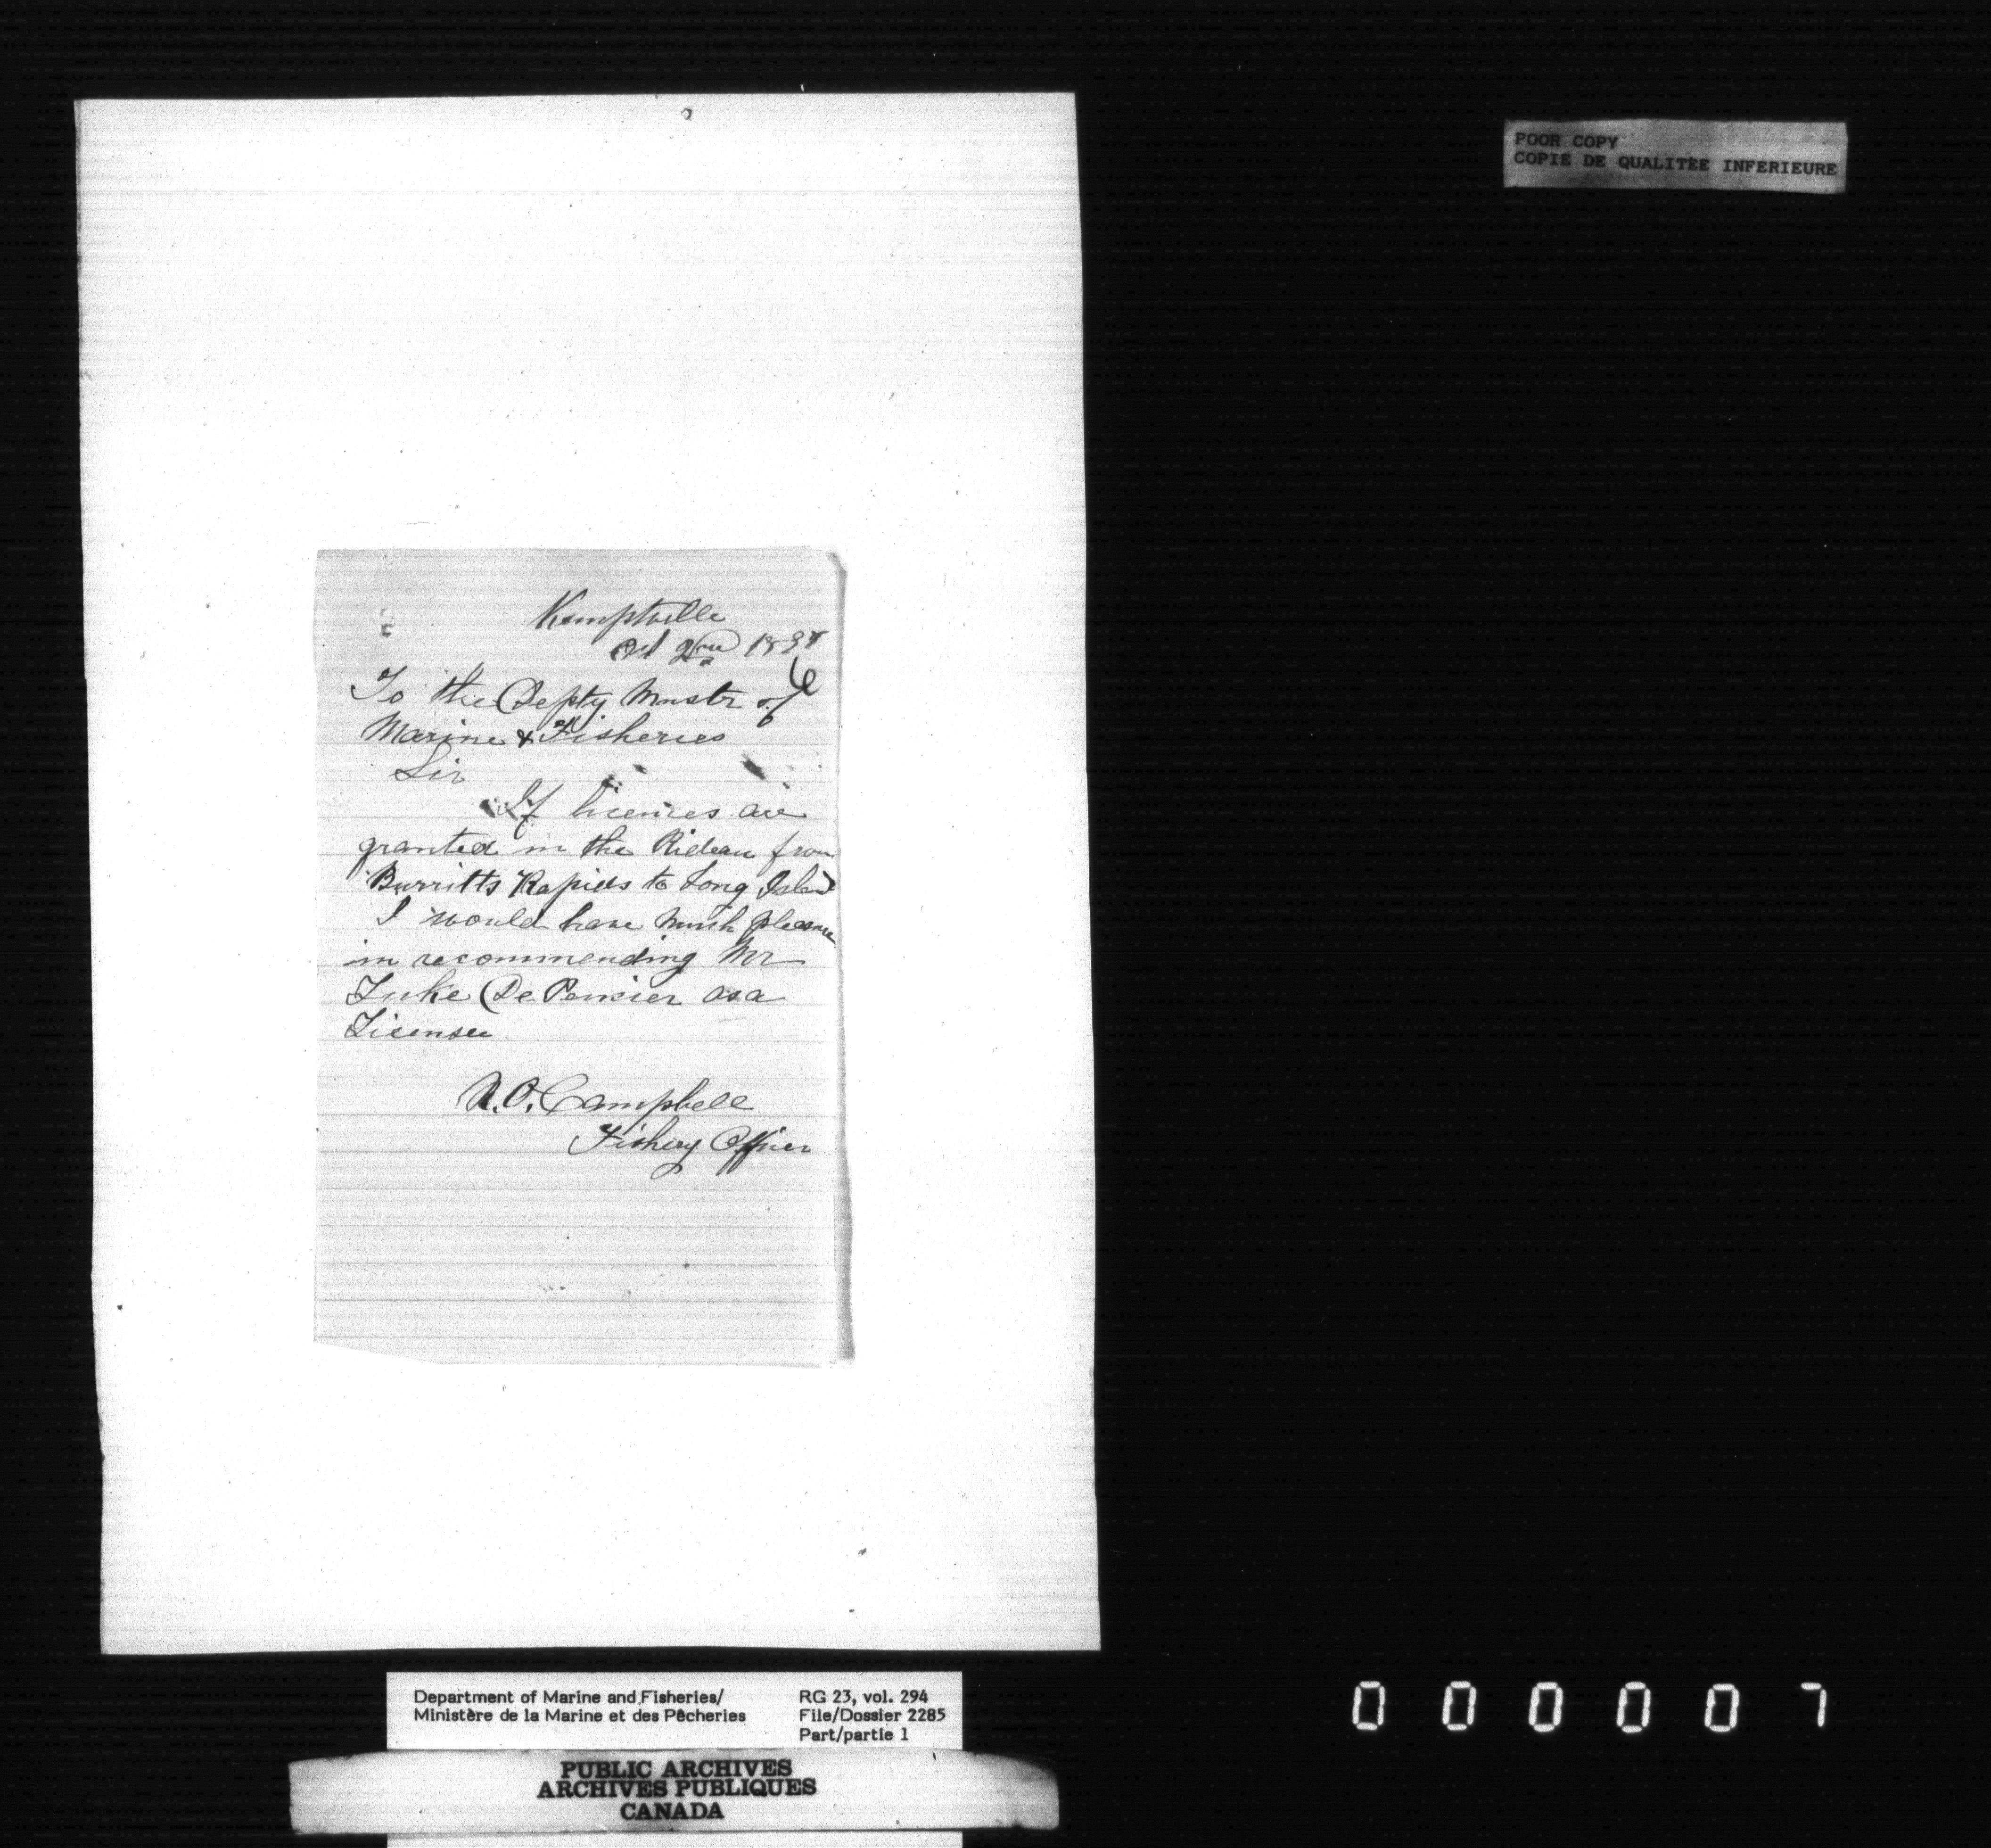 POOR COPY
COPIE DE QUALITEE INFERIEURE
Kemptville
Oct 1897
6
To the Depty Mnstr of
Marine & Fisheries
Sir
If licenses are
granted in the Rideau from
Burritts Rapids to Long Island
I would have much pleasure
in recommending Mr
Luke De Pencier as a
Licensee
A. O. Campbell
Fishery Officer
Department of Marine and Fisheries/
Ministère de la Marine et des Pêcheries
RG 23, vol. 294
File/Dossier 2285
Part/partie 1
PUBLIC ARCHIVES
ARCHIVES PUBLIQUES
CANADA
000007